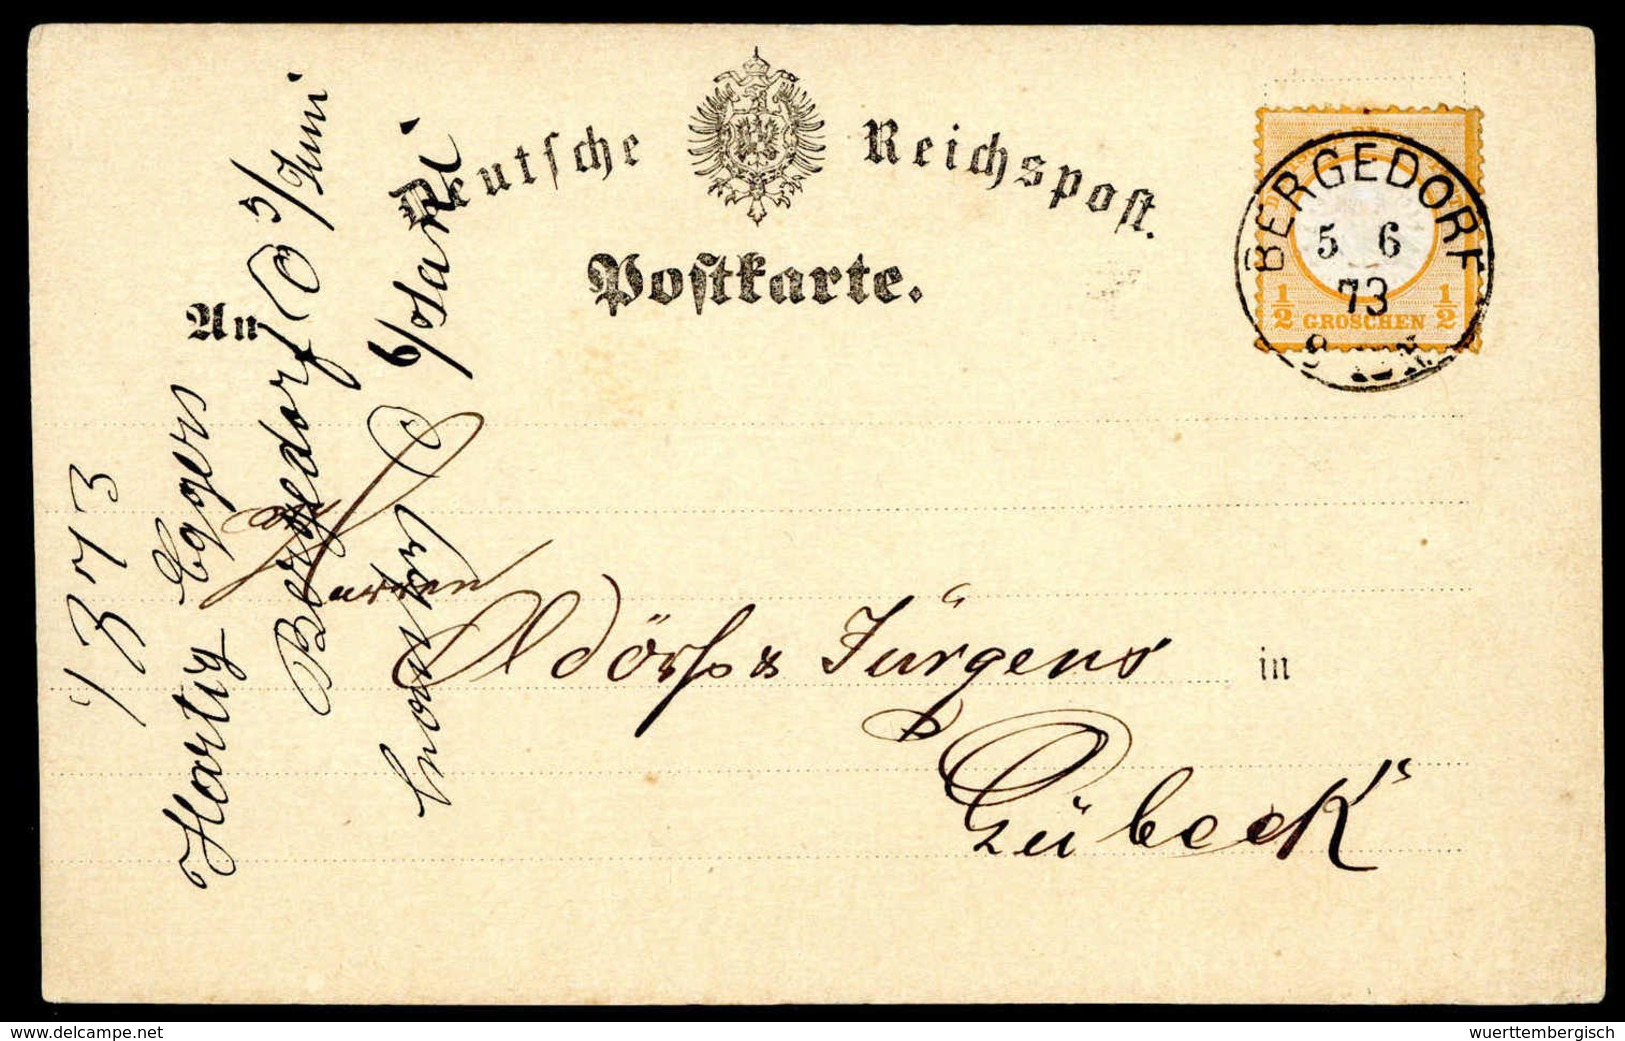 Deutsche Reichspost.
Postkarte.
An
BERGEDORF
5 6
73
½ GROSCHEN ½
Herren
Adörf & Jürgens
in
Lübeck
1373
Hartig Eggers
Bergedorf 5/Juni
6/
delcampe.net
wuerttembergisch